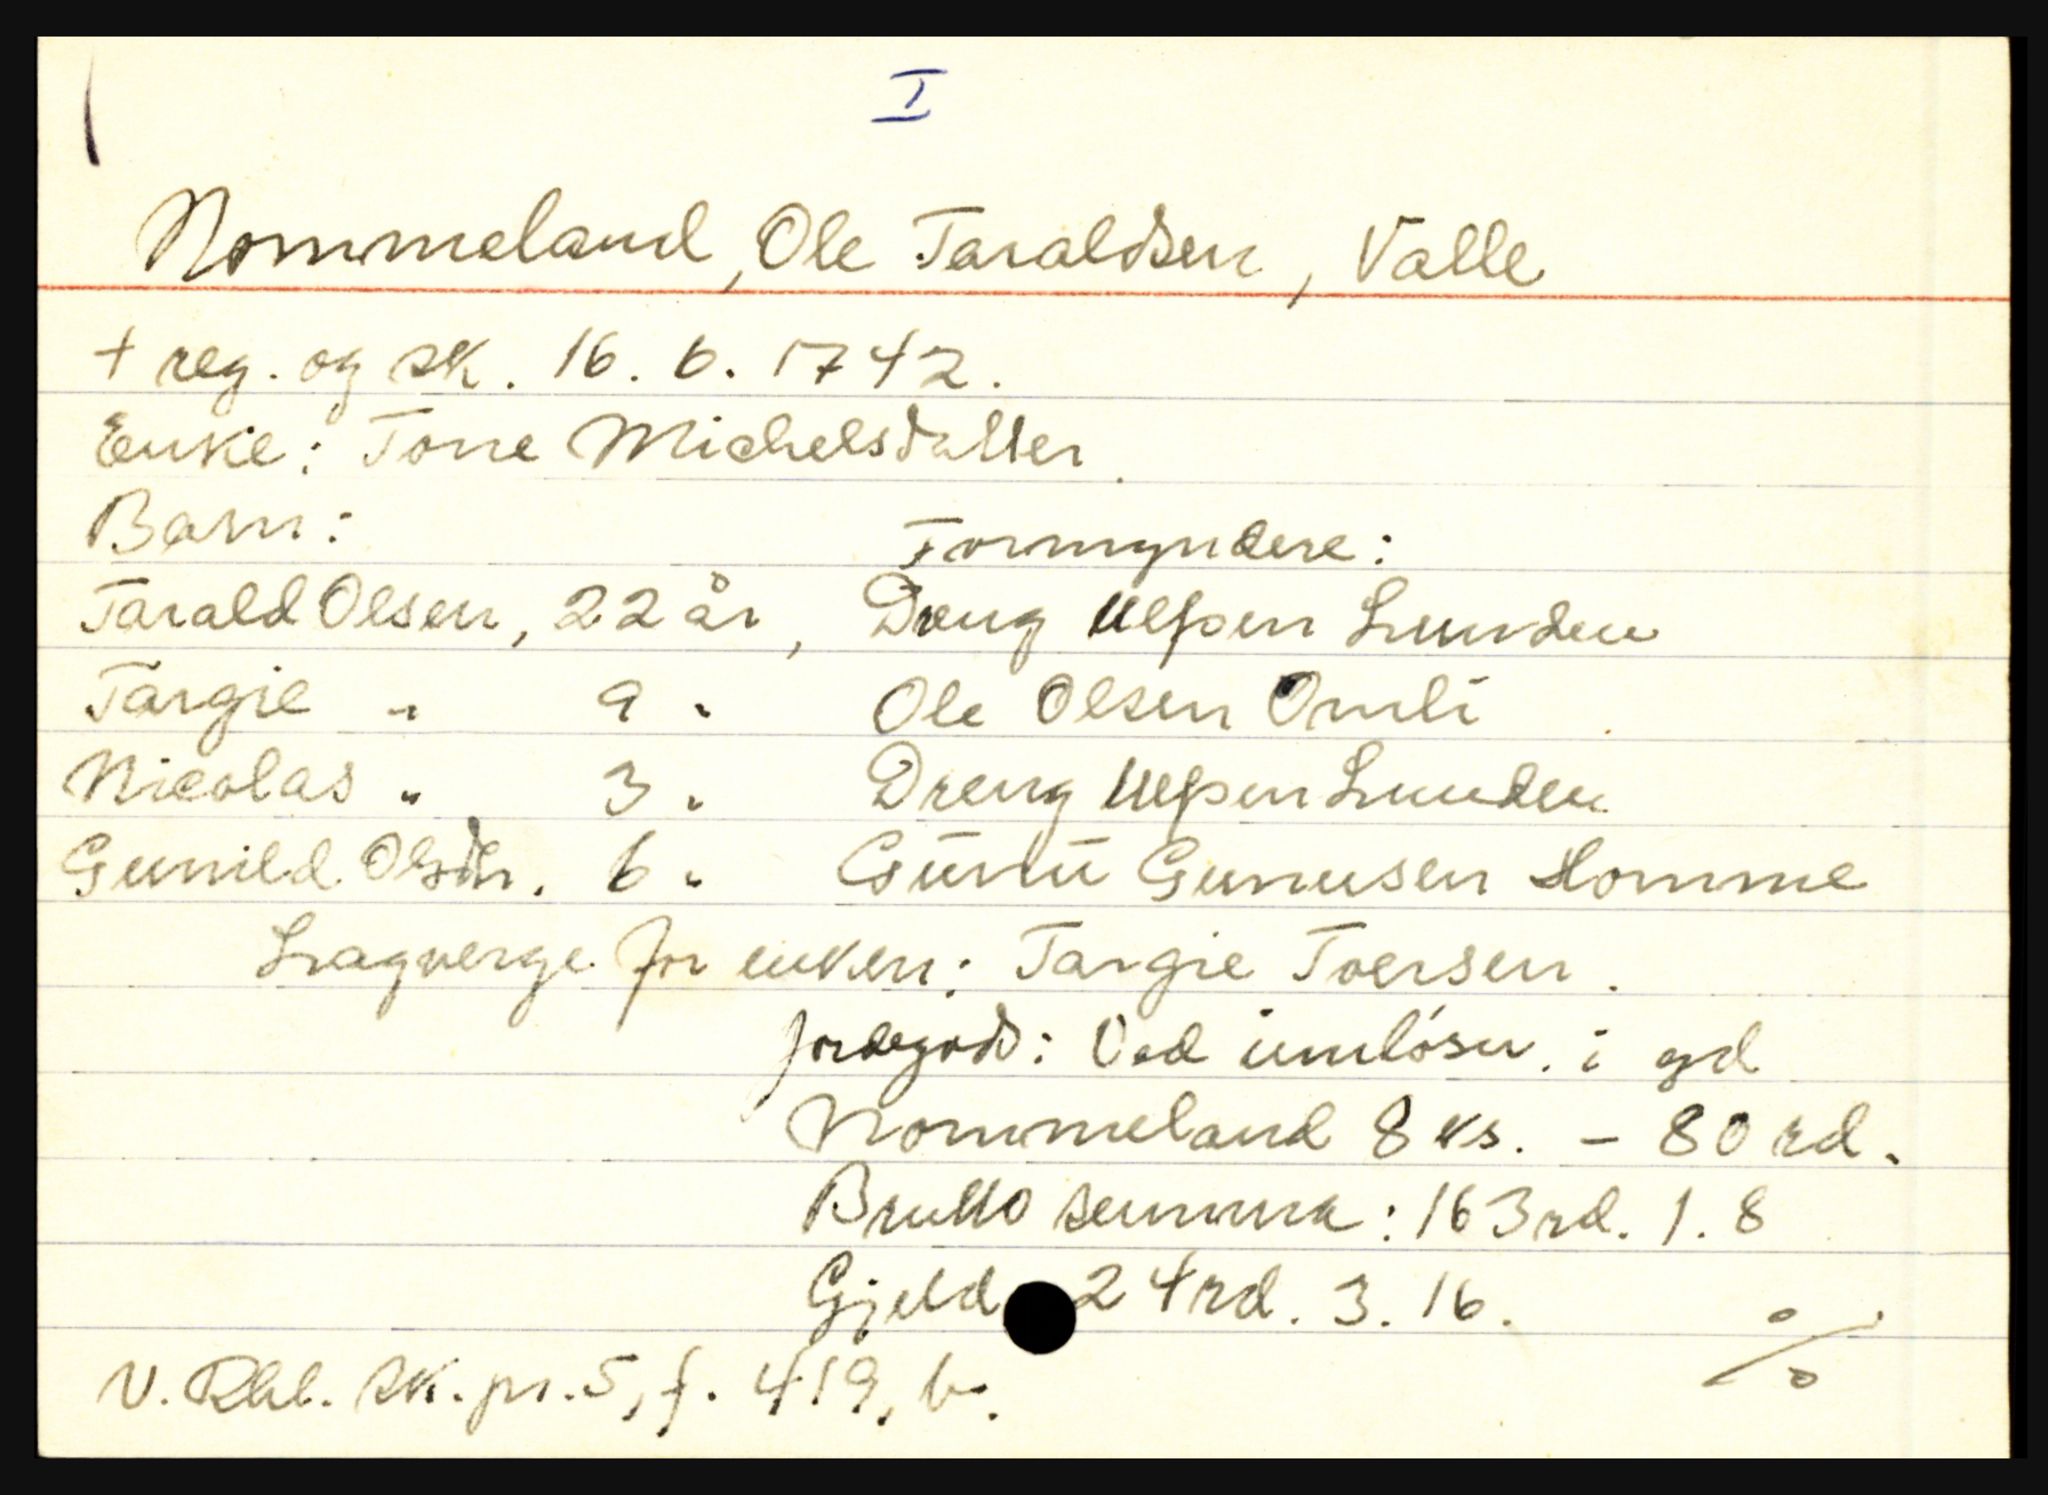 I
Nommeland, Ole Taraldsen, Valle
+ reg. og sk. 16. 6. 1742.
Enke: Tone Michelsdatter.
Barn: Formyndere:
Tarald Olsen, 22 år, Dreng Ulfsen Lunden
Targie " 9 " Ole Olsen Omli
Nicolas " 3 " Dreng Ulfsen Lunden
Gunild Olsdtr. 6 " Gŭnŭ Gunusen Homme
Lagverge for enken: Targie Toersen.
Jordegods: Ved innløsn. i gd
Nommeland 8 ks. - 80 rd.
Brutto summa: 163 rd. 1. 8
Gjeld 24 rd. 3. 16.
V. Rbl. sk. pr. 5, f. 419, b.
%